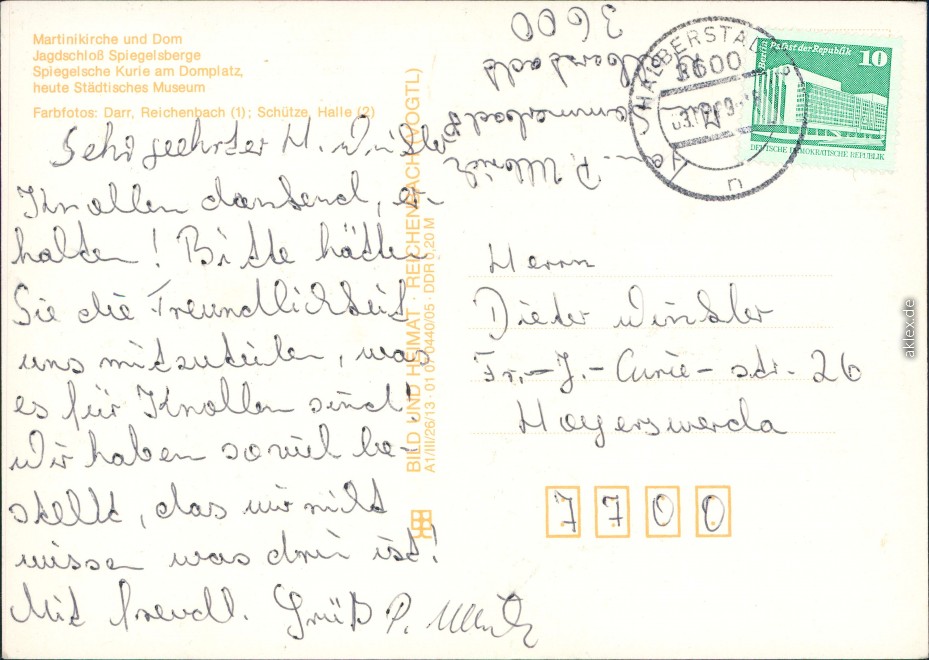 Martinikirche und Dom
Jagdschloß Spiegelsberge
Spiegelsche Kurie am Domplatz,
heute Städtisches Museum
Farbfotos: Darr, Reichenbach (1); Schütze, Halle (2)
Sehr geehrter H. Winkler
Knollen dankend, er-
halten! Bitte hätten
Sie die Freundlichkeit
uns mitzuteilen, was
es für Knollen sind!
Wir haben soviel be-
stellt, das wir nicht
wissen was drin ist!
Mit freudl. Grüß P.
BILD UND HEIMAT · REICHENBACH (VOGTL)
A1/III/26/13 · 01 07 0440/05 · DDR 0,20 M
3600
P.
HALBERSTADT
3600
n
Berlin Palast der Republik
10
DEUTSCHE DEMOKRATISCHE REPUBLIK
Herrn
Dieter Winkler
Fr.-J.-Curie-str. 26
Hoyerswerda
7700
aklex.de